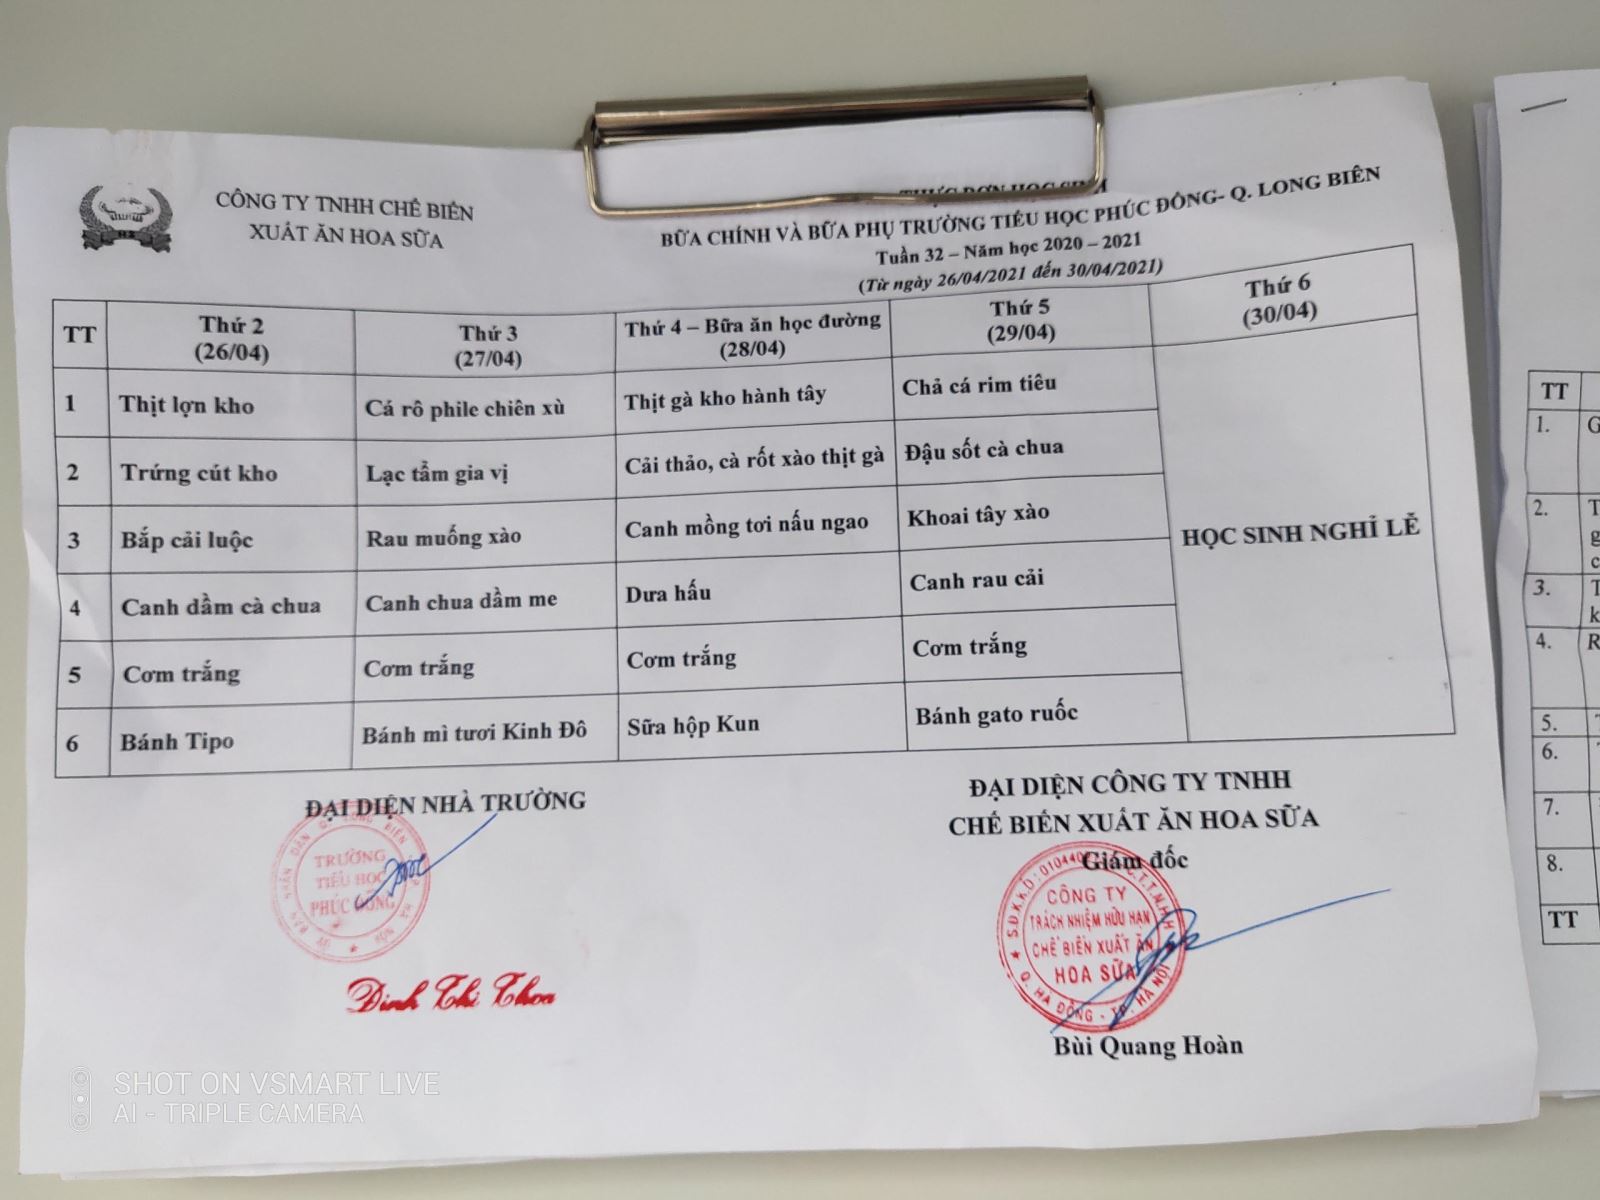 CÔNG TY TNHH CHẾ BIẾN
XUẤT ĂN HOA SỮA
THỰC ĐƠN HỌC SINH
BỮA CHÍNH VÀ BỮA PHỤ TRƯỜNG TIỂU HỌC PHÚC ĐỒNG- Q. LONG BIÊN
Tuần 32 – Năm học 2020 – 2021
(Từ ngày 26/04/2021 đến 30/04/2021)
TT Thứ 2 (26/04) Thứ 3 (27/04) Thứ 4 – Bữa ăn học đường (28/04) Thứ 5 (29/04) Thứ 6 (30/04)
1 Thịt lợn kho Cá rô phile chiên xù Thịt gà kho hành tây Chả cá rim tiêu
2 Trứng cút kho Lạc tẩm gia vị Cải thảo, cà rốt xào thịt gà Đậu sốt cà chua
3 Bắp cải luộc Rau muống xào Canh mồng tơi nấu ngao Khoai tây xào
HỌC SINH NGHỈ LỄ
4 Canh dầm cà chua Canh chua dầm me Dưa hấu Canh rau cải
5 Cơm trắng Cơm trắng Cơm trắng Cơm trắng
6 Bánh Tipo Bánh mì tươi Kinh Đô Sữa hộp Kun Bánh gato ruốc
ĐẠI DIỆN NHÀ TRƯỜNG
TRƯỜNG
TIỂU HỌC
PHÚC ĐỒNG
Đinh Thi Thoa
ĐẠI DIỆN CÔNG TY TNHH
CHẾ BIẾN XUẤT ĂN HOA SỮA
Giám đốc
CÔNG TY
TRÁCH NHIỆM HỮU HẠN
CHẾ BIẾN XUẤT ĂN
HOA SỮA
Q. HÀ ĐÔNG - TP. HÀ NỘI
Bùi Quang Hoàn
TT
1.
2.
3.
4.
5.
6.
7.
8.
TT
SHOT ON VSMART LIVE
AI - TRIPLE CAMERA